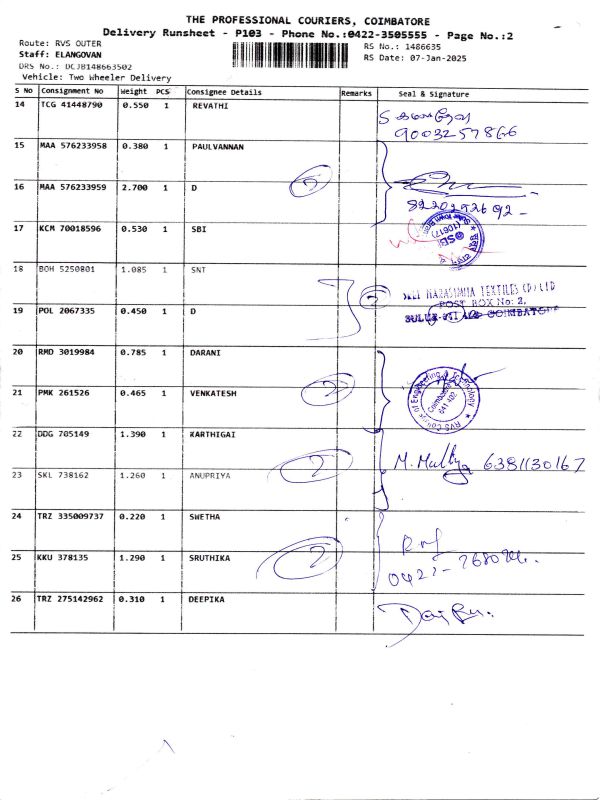 THE PROFESSIONAL COURIERS, COIMBATORE
Delivery Runsheet - P103 - Phone No.:0422-3505555 - Page No.:2
Route: RVS OUTER
RS No.: 1486635
Staff: ELANGOVAN
RS Date: 07-Jan-2025
DRS No.: DCJB148663502
Vehicle: Two Wheeler Delivery
S No Consignment No Weight PCS Consignee Details Remarks Seal & Signature
14 TCG 41448790 0.550 1 REVATHI
9003257866
15 MAA 576233958 0.380 1 PAULVANNAN
16 MAA 576233959 2.700 1 D
8220292692
17 KCM 70018596 0.530 1 SBI
SBI
(10617)
18 BOH 5250801 1.085 1 SNT
2
SREE NARASIMHA TEXTILES (P) LTD
POST BOX No: 2,
19 POL 2067335 0.450 1 D
20 RMD 3019984 0.785 1 DARANI
RVS College of Engineering & Technology
Coimbatore
641 402
21 PMK 261526 0.465 1 VENKATESH
2
22 DDG 705149 1.390 1 KARTHIGAI
2 6381130167
23 SKL 738162 1.260 1 ANUPRIYA
24 TRZ 335009737 0.220 1 SWETHA
25 KKU 378135 1.290 1 SRUTHIKA
2
26 TRZ 275142962 0.310 1 DEEPIKA